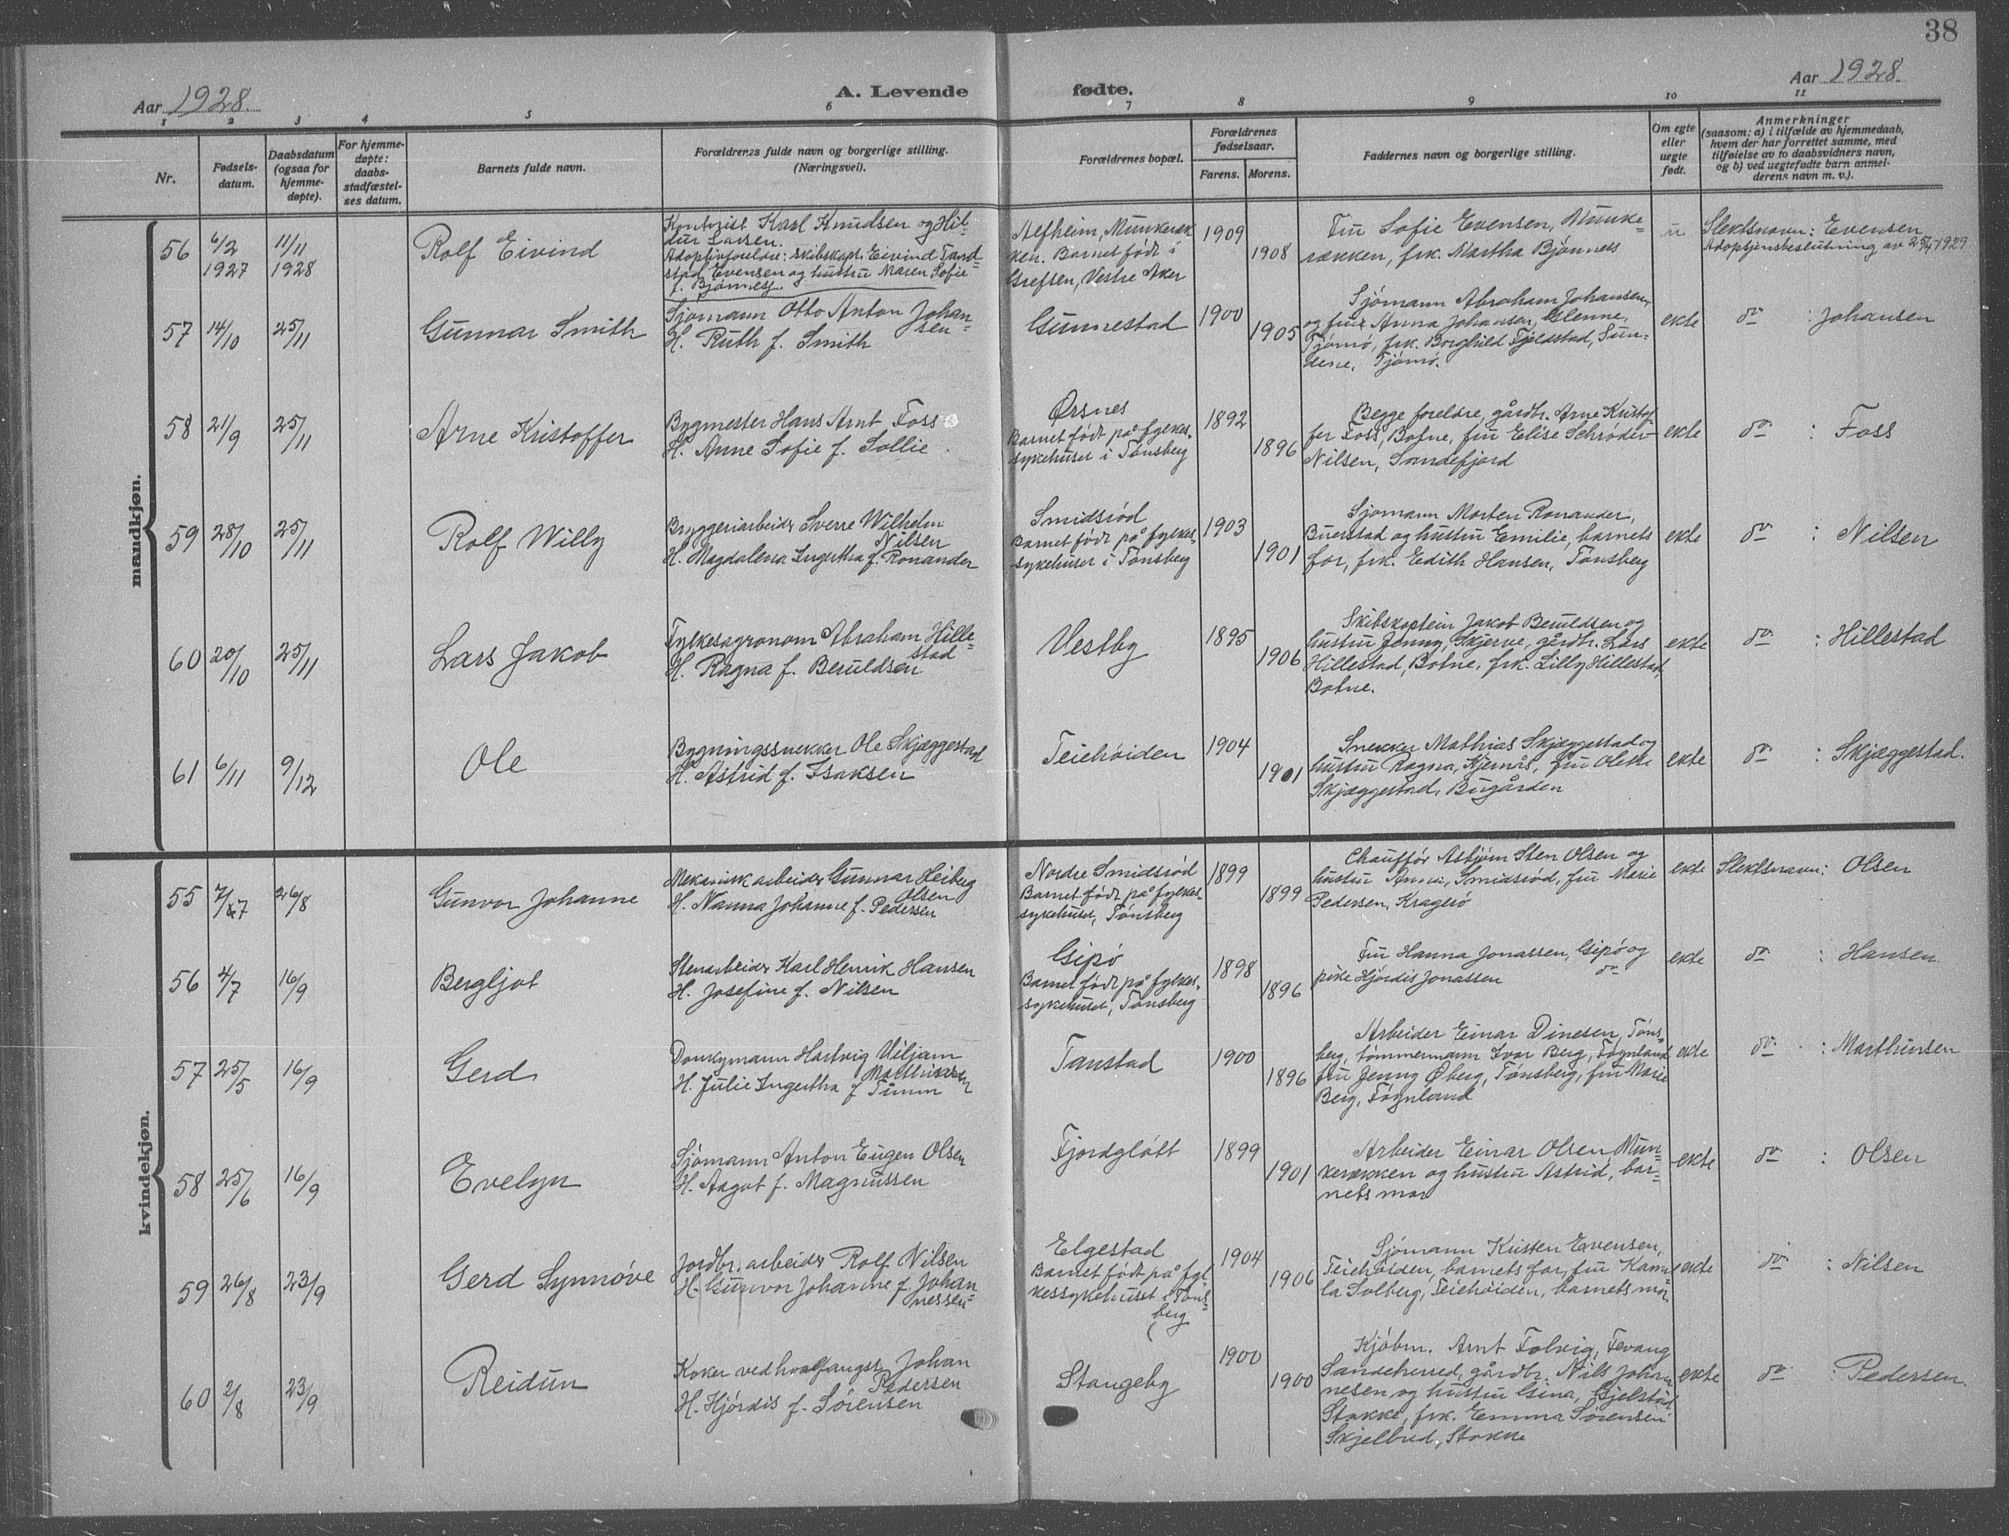 38
Aar 1928.
A. Levende fødte.
Aar 1928.
1 2 3 4 5 6 7 8 9 10 11
Nr.
Fødsels-
datum.
Daabsdatum
(ogsaa for
hjemme-
døpte).
For hjemme-
døpte:
daabs-
stadfæstel-
ses datum.
Barnets fulde navn.
Forældrenes fulde navn og borgerlige stilling.
(Næringsvei).
Forældrenes bopæl.
Forældrenes
fødselsaar.
Farens. Morens.
Faddernes navn og borgerlige stilling.
Om egte
eller
uegte
født.
Anmerkninger
(saasom: a) i tilfælde av hjemmedaab,
hvem der har forrettet samme, med
tilføielse av to daabsvidners navn,
og b) ved uegtefødte barn anmel-
derens navn m. v.).
mandkjøn.
56
6/2
1927
11/11
1928
Rolf Eivind
Kontorist Karl Knudsen og Hil-
dur Larsen.
Adoptivforeldre: skibskapt. Eivind Tand-
stad Evensen og hustru Maren Sofie
f. Bjønnes.
Alfheim, Munkeræk-
ken. Barnet født i
Grefsen, Vestre Aker
1909
1908
Fru Sofie Evensen, Munke-
rækken, frk. Martha Bjønnes
u
Slektsnavn: Evensen
Adopsjonsbeslutning av 25/4 1929
57
14/10
25/11
Gunnar Smith
Sjømann Otto Anton Johan-
sen
H. Ruth f. Smith
Gunnestad
1900
1905
Sjømann Abraham Johansen
og fru Anna Johansen, Glenne,
Tjømø, frk. Borghild Fjeldstad, Sun-
dene, Tjømø.
ekte
do : Johansen
58
21/9
25/11
Arne Kristoffer
Bygmester Hans Arnt Foss
H. Anne Sofie f. Sollie
Ørsnes
Barnet født på fylkes-
sykehuset i Tønsberg
1892
1896
Begge foreldre, gårdbr. Arne Kristof-
fer Foss, Botne, fru Elise Schrøder-
Nilsen, Sandefjord
ekte
do : Foss
59
28/10
25/11
Rolf Willy
Bryggeriarbeider Sverre Wilhelm
Nilsen
H. Magdalena Ingertha f. Ronander
Smidsrød
Barnet født på fylkes-
sykehuset i Tønsberg
1903
1901
Sjømann Morten Ronander,
Buerstad og hustru Emilie, barnets
far, frk. Edith Hansen, Tønsberg
ekte
do : Nilsen
60
20/10
25/11
Lars Jakob
Fylkesagronom Abraham Hille-
stad
H. Ragna f. Beruldsen
Vestby
1895
1906
Skibskaptein Jakob Beruldsen og
hustru Jenny, Skjerve, gårdbr. Lars
Hillestad, Botne, frk. Lilly Hillestad,
Botne.
ekte
do : Hillestad
61
6/11
9/12
Ole
Bygningssnekker Ole Skjæggestad
H. Astrid f. Isaksen
Teiehøiden
1904
1901
Snekker Mathias Skjæggestad og
hustru Ragna, Kjernås, fru Olette
Skjæggestad, Bugården
ekte
do : Skjæggestad.
kvindekjøn.
55
26/8
Gunvor Johanne
Mekanisk arbeider Gunnar Heiberg
Olsen
H. Nanna Johanne f. Pedersen
Nordre Smidsrød
Barnet født på fylkes-
sykehuset, Tønsberg
1899
1899
Chauffør Asbjørn Sten Olsen og
hustru Anna, Smidsrød, fru Marie
Pedersen, Kragerø
ekte
Slektsnavn: Olsen
56
4/7
16/9
Bergljot
Stenarbeider Karl Henrik Hansen
H. Josefine f. Nilsen
Gipø
Barnet født på fylkes-
sykehuset, Tønsberg
1898
1896
Fru Hanna Jonassen, Gipø og
pike Hjørdis Jonassen do
ekte
do : Hansen
57
25/5
16/9
Gerd
Donkymann Hartvig Viljam
Marthinsen
H. Julie Ingertha f. Timm
Tanstad
1900
1896
Arbeider Einar Dinesen, Tøns-
berg, tømmermann Ivar Berg, Føynland
fru Jenny Øberg, Tønsberg, fru Marie
Berg, Føynland
ekte
do : Marthinsen
58
25/6
16/9
Evelyn
Sjømann Anton Eugen Olsen
H. Aagot f. Magnussen
Fjordgløtt
1899
1901
Arbeider Einar Olsen Mun-
kerækken og hustru Astrid, bar-
nets mor
ekte
do : Olsen
59
26/8
23/9
Gerd Synnøve
Jordbr. arbeider Rolf Nilsen
H. Gunvor Johanne f. Johan-
nessen
Elgestad
Barnet født på fyl-
kessykehuset i Tøns-
berg
1904
1906
Sjømann Kristen Evensen,
Teiehøiden, barnets far, fru Kami-
la Solberg, Teiehøiden, barnets mor
ekte
do : Nilsen
60
2/8
23/9
Reidun
Koker ved hvalfangst Johan
Pedersen
H. Hjørdis f. Sørensen
Stangeby
1900
1900
Kjøbm. Arnt Tolvig, Fevang
Sandeherred, gårdbr. Nils Johan-
nesen og hustru Gina, Gjelstad
Stokke, frk. Emma Sørensen
Skjelbred, Stokke
ekte
do : Pedersen